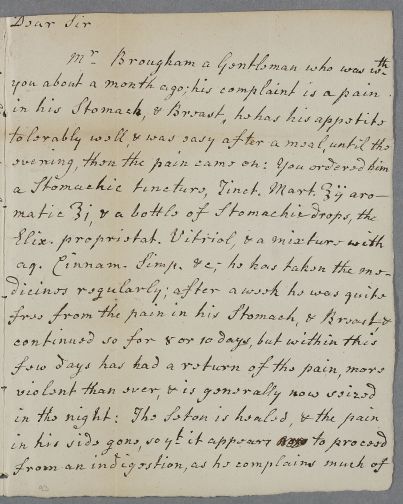 Dear Sir
Mr. Brougham a Gentleman who was wth
you about a month ago; his complaint is a pain
in his Stomach, & Breast, he has his appetite
tolerably well, & was easy after a meal, until the
evening, then the pain came on: You ordered him
a Stomachic tincture, Tinct. Mart. ʒij aro-
matic ʒj, & a bottle of Stomachic drops, the
Elix. proprietat. Vitriol, & a mixture with
aq. Cinnam. Simp. &c; he has taken the me-
dicines regularly; after a week he was quite
free from the pain in his Stomach, & Breast, &
continued so for 8 or 10 days, but within this
few days has had a return of the pain, more
violent than ever, & is generally now seized
in the night: The Seton is healed, & the pain
in his side gone, so yt. it appears to proceed
from an indigestion, as he complains much of
93